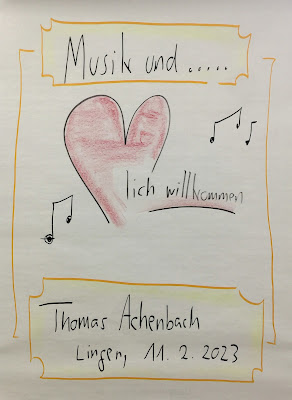 Musik und .....
lich willkommen
Thomas Achenbach
Lingen, 11. 2. 2023